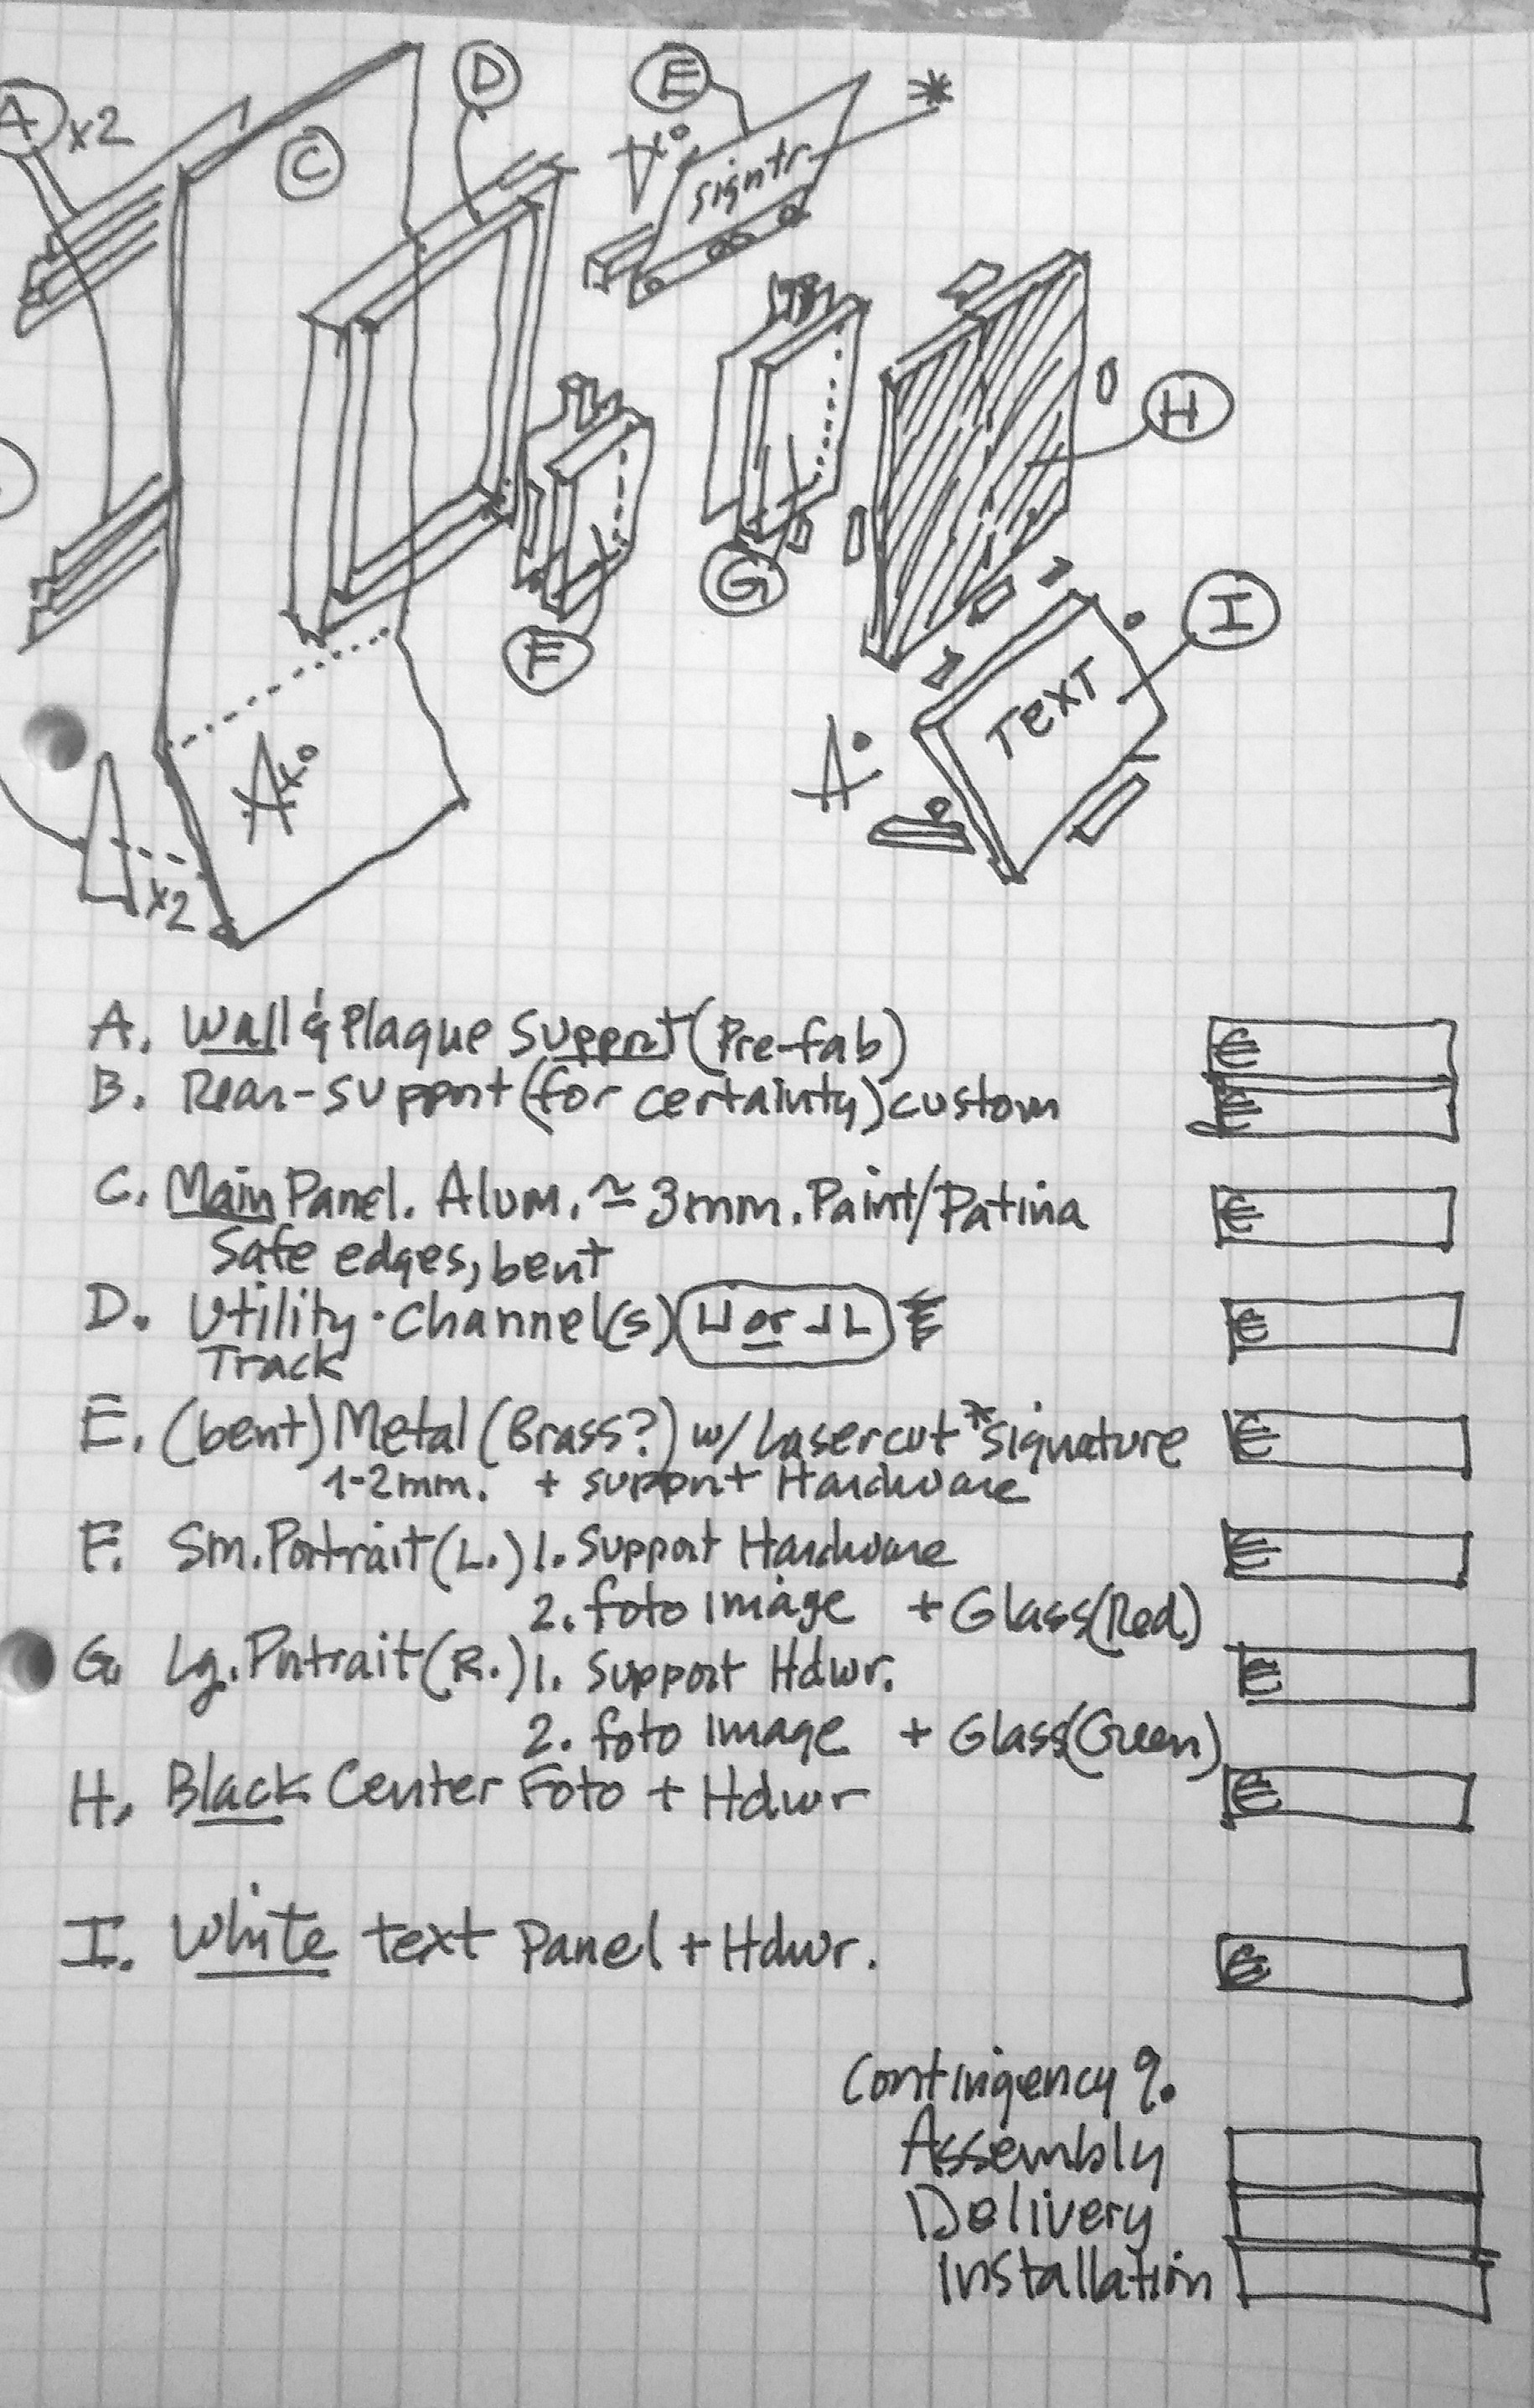 A x2
D
E
*
C
signtr
x°
H
G
I
F
TEXT
A x°
A°
x2
A. Wall & Plaque Support (Pre-fab) €
B. Rear-support (for certainty) custom €
C. Main Panel. Alum. ≃ 3mm. Paint/Patina €
Safe edges, bent
D. Utility Channel(s) ⊔ or ⅃L €
Track
E. (bent) Metal (Brass?) w/ Lasercut *signature €
1-2mm. + support Hardware
F. Sm. Portrait (L.) 1. Support Hardware €
2. foto image + Glass (Red)
G. Lg. Portrait (R.) 1. Support Hdwr. €
2. foto image + Glass (Green)
H. Black Center Foto + Hdwr €
I. White text Panel + Hdwr. €
Contingency ?.
Assembly
Delivery
Installation